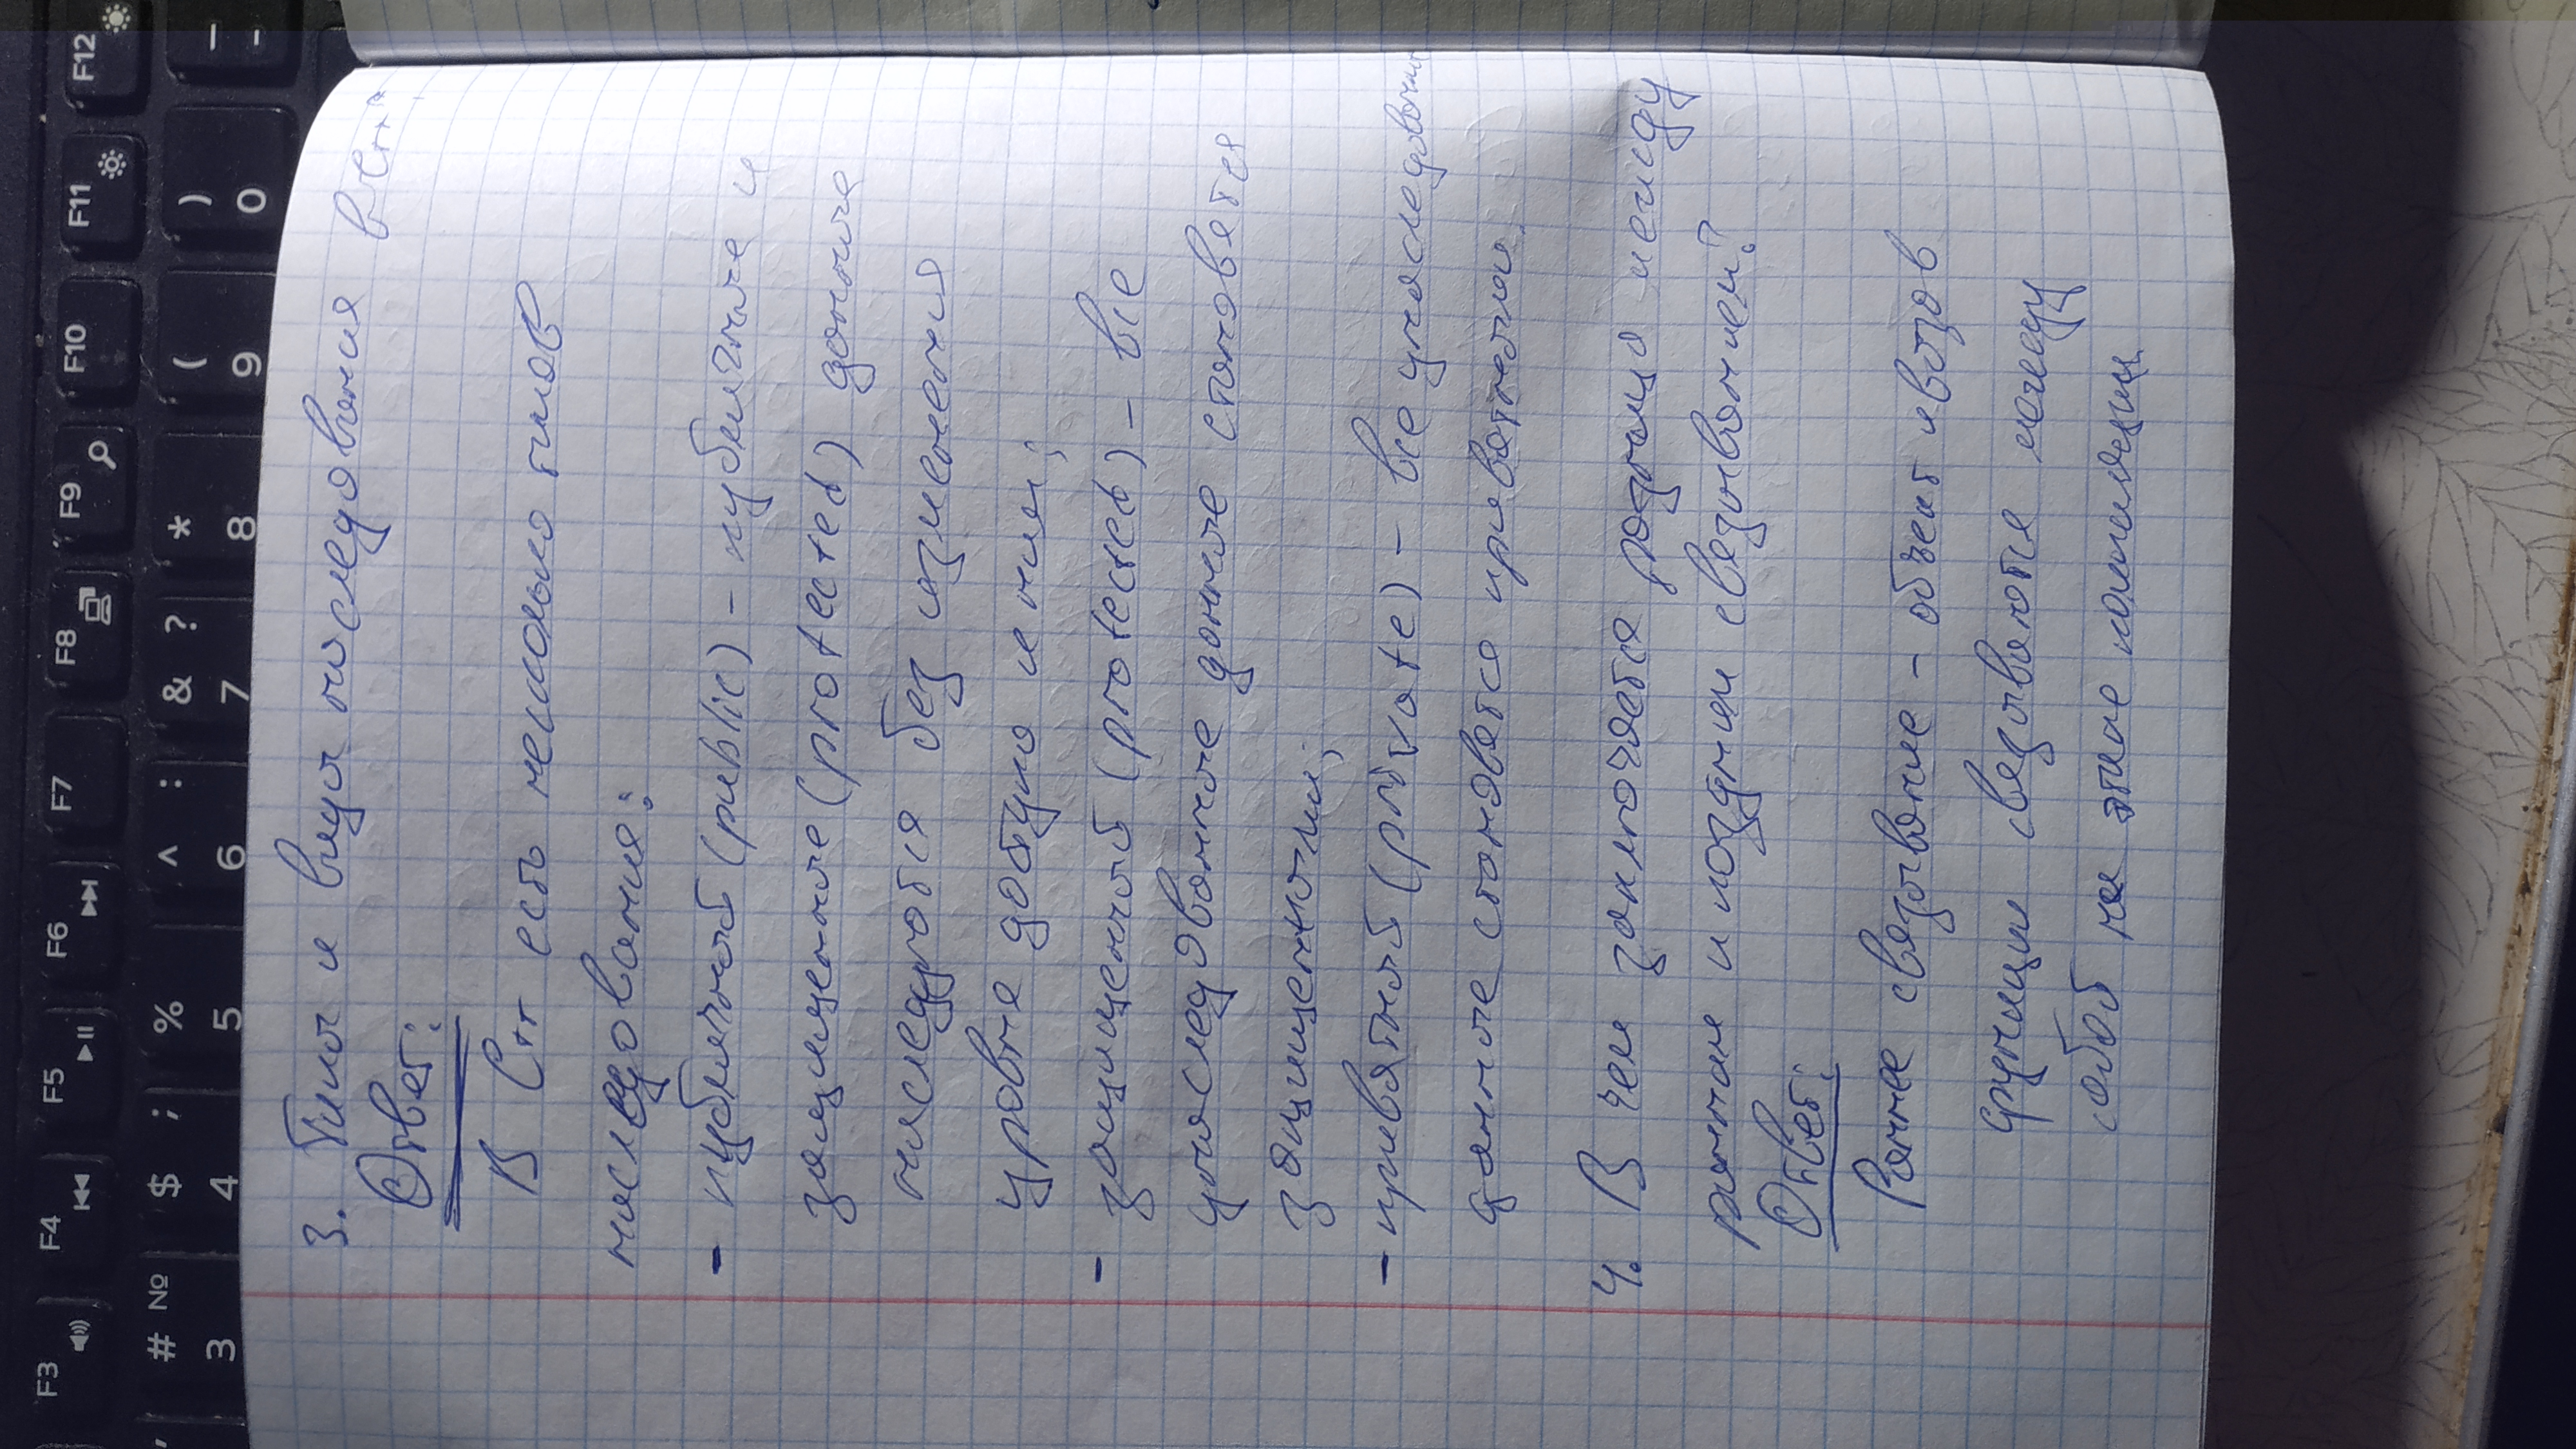 3. Типы и виды наследования в С++
Ответ:
В С++ есть несколько типов
наследования:
- публичный (public) - публичные и
защищенные (protected) данные
наследуются без изменения
уровня доступа к ним;
- защищенный (protected) - все
унаследованные данные становятся
защищенными;
- приватный (private) - все унаследованные
данные становятся приватными.
4. В чем заключается разница между
ранним и поздним связыванием?
Ответ:
Раннее связывание - объект и вызов
функции связываются между
собой на этапе компиляции
F3 F4 F5 F6 F7 F8 F9 F10 F11 F12
# № $ ; % ^ : & ? * ( ) _
3 4 5 6 7 8 9 0 -